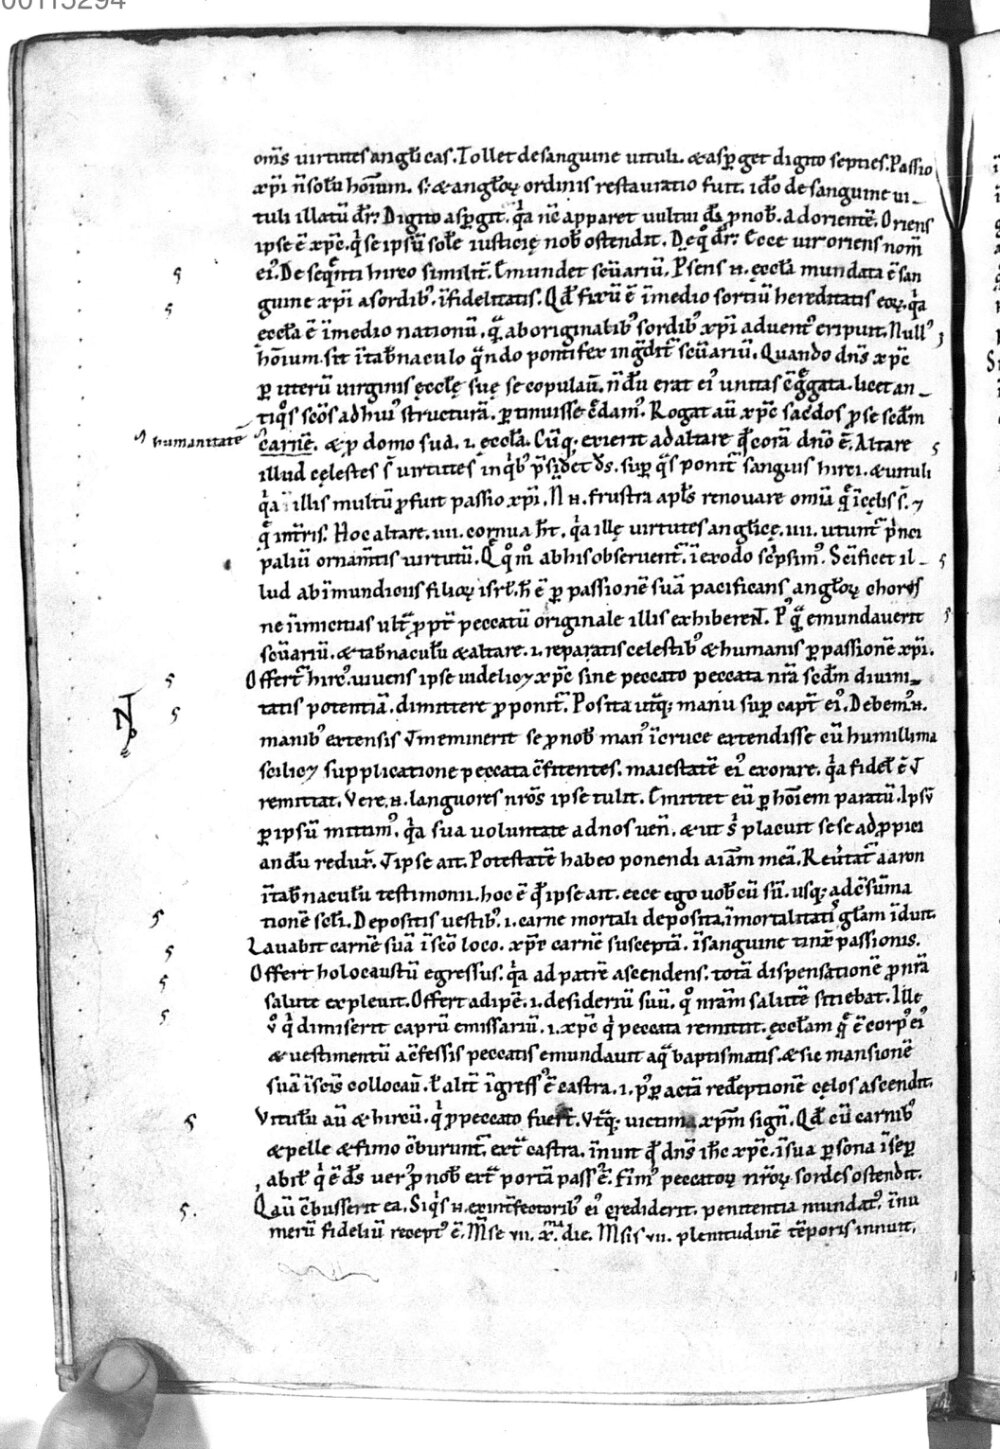 00115294
om̄s uirtutes angl̄icas. Tollet de sanguine uituli. & asp̄get digito septies. Passio
xp̄i n̄ solū hoīum. s; & angl̄oꝝ ordinis restauratio fuit. id̄o de sanguine ui_
tuli illatū dr̄. Digito asp̄git. q̄a nc̄ apparet uultui dī p̄ nob̄. Ad orientē. Oriens
ipse ē xp̄c. q̄ se ipsū sol̄e iusticię nob̄ ostendit. De q̊ dr̄. Ecce uir oriens nom̄
ei᾿. De seq̄nti hirco similit̄. Emundet sc̄uariū. P̄sens n̄. ęccl̄a mundata ē san
guine xp̄i a sordib᾿. īfidelitatis. Qd̄ fixū ē ī medio sortiū hereditatis eoꝝ. q̄a
eccl̄a ē ī medio nationū. q̄ ab originalib᾿ sordib᾿ xp̄i aduent᾿ eripuit. Null᾿
hōium. sit ī tab̄naculo q̄ndo pontifex ingdit᾿ sc̄uariū. Quando dn̄s xp̄c
ꝑ uterū uirginis ęccl̄ę suę se copulaū. n̄dū erat ei᾿ unitas c̄g̅gata. licet an_
tiq̊s sc̄os ad hui᾿ structurā. ꝑtinuisse c̄dam᾿. Rogat aū xp̄c sac̄dos p̄ se sedm̄
humanitatē
carnē. & p̄ domo sua. i. eccl̄a. Cūq; exierit ad altare q̄ corā dn̄o ē. Altare
illud cęlestes s̄ uirtutes in q̄b᾿ p̄sidet d̄s. suꝑ q̄s ponit᾿ sanguis hirci. & uituli
q̄a illis multū ꝓfuit passio xp̄i. N̄ n̄. frustra apl̄s renouare om̄ia q̄ ī cęlis s̄. ⁊
q̄ in tr̄is. Hoc altare. iiii. cornua h̄t. q̄a illę uirtutes angl̄icę. iiii. utunt᾿ p̄nci
paliū ornam̄tis uirtutū. Qq̊m̊ ab his obseruent᾿. ī exodo sc̄psim᾿. Sc̄ificet il_
lud ab īmundiciis filioꝝ isrl̄. h̄ ē ꝑ passionē suā pacificans angl̄oꝝ choros
ne inimicitias ult̄ ꝓpt᾿ peccatū originale illis exhiberent. P᾿q̄ emundauerit
sc̄uariū. & tab̄naculū & altare. i. reparatis celestib᾿ & humanis ꝑ passionē xp̄i.
Offert᾿ hirc᾿. uiuens ipse uidelicꝫ xp̄c sine peccato peccata nr̄a sedm̄ diuini_
tatis potentiā. dimittere ꝓponit᾿. Posita utq̄; manu suꝑ capt̄ ei᾿. Debem᾿ n̄.
manib᾿ extensis ut meminerit se ꝓ nob̄ man᾿ ī cruce extendisse cū humillima
scilicꝫ supplicatione peccata c̄fitentes. maiestatē ei᾿ exorare. q̄a fidel̄ ē ut
remittat. Vere. n̄. languores nr̄os ipse tulit. Emittet eū ꝑ hōiem paratū. Ipsū
ꝑ ipsū mittim᾿. q̄a sua uoluntate ad nos uen̄. & ut s̄ placuit sese ad ꝓpici
andū redux̄. ut ipse ait. Potestatē habeo ponendi aīam meā. Reūtat᾿ aaron
ī tab̄naculū testimonii. hoc ē q̄ ipse ait. ecce ego uob̄cū sū. usq; ad c̄sūma
tionē sc̄li. Depositis uestib᾿. i. carne mortali deposita. īmortalitati᾿ gl̄am īduit.
Lauabit carnē suā ī sc̄o loco. xp̄c carnē susceptā. ī sanguine tinx̄ passionis.
Offert holocaustū egressus. q̄a ad patrē ascendens. totā dispensationē ꝓ nr̄a
salute expleuit. Offert adipē. i. desideriū suū. q̊ nr̄am salutē sitiebat. Ille
ů q̄ dimiserit caprū emissariū. i. xp̄c q̄ peccata remittit. ęccl̄am q̄ ē corp᾿ ei᾿
& uestimentū a c̄fessis peccatis emundauit aq̄ baptismatis. & sic mansionē
suā ī sc̄is collocaū. l̄ alit̄ ingress᾿ ē castra. i. p᾿ ꝑactā red̄eptionē cęlos ascendit.
Vitulū aū & hircū. q̄ ꝓ peccato fuert̄. Vtq̄; uictima xp̄m sign̄. Qd̄ cū carnib᾿
& pelle & fimo c̄burunt᾿. ext̄ castra. īnuit q̄ dn̄s ih̄c xp̄c. ī sua ꝑsona ī seꝑ
abil̄ q̄ ē d̄s uer᾿ ꝓ nob̄ ext̄ portā pass᾿ ē. Fim᾿ peccatoꝝ nr̄oꝝ sordes ostendit.
Q aū c̄busserit ea. Siq̄s n̄. ex int̄fectorib᾿ ei᾿ crediderit. penitentia mundat᾿. ī nu
merū fideliū recept᾿ ē. M̄se vii. x.ᵃ die. M̄sis vii. plenitudinē tēporis innuit.